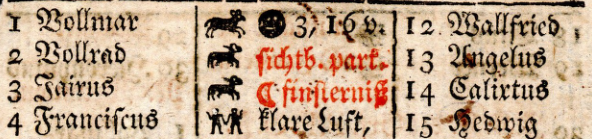 1 Vollmar 3, 16 v. 12 Wallfried
2 Vollrad sichtb. part. 13 Angelus
3 Jairus ☾ finsterniß 14 Calixtus
4 Franciscus klare Luft, 15 Hedwig